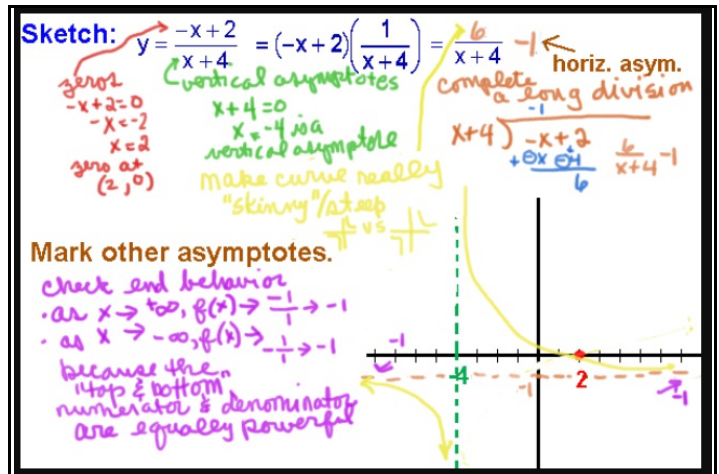 Sketch: y = (-x+2)/(x+4) = (-x+2)(1/(x+4)) = 6/(x+4) -1
horiz. asym.
zeros
-x+2=0
-x=-2
x=2
zero at
(2,0)
vertical asymptotes
x+4=0
x=-4 is a
vertical asymptote
make curve really
"skinny"/steep
vs
complete
a long division
-1
x+4) -x+2
6
6/(x+4) -1
Mark other asymptotes.
check end behavior
• as x → +∞, f(x) → -1/1 → -1
• as x → -∞, f(x) → -1/1 → -1
because the
"top & bottom
numerator & denominator
are equally powerful
-1
-4
2
-1
-1